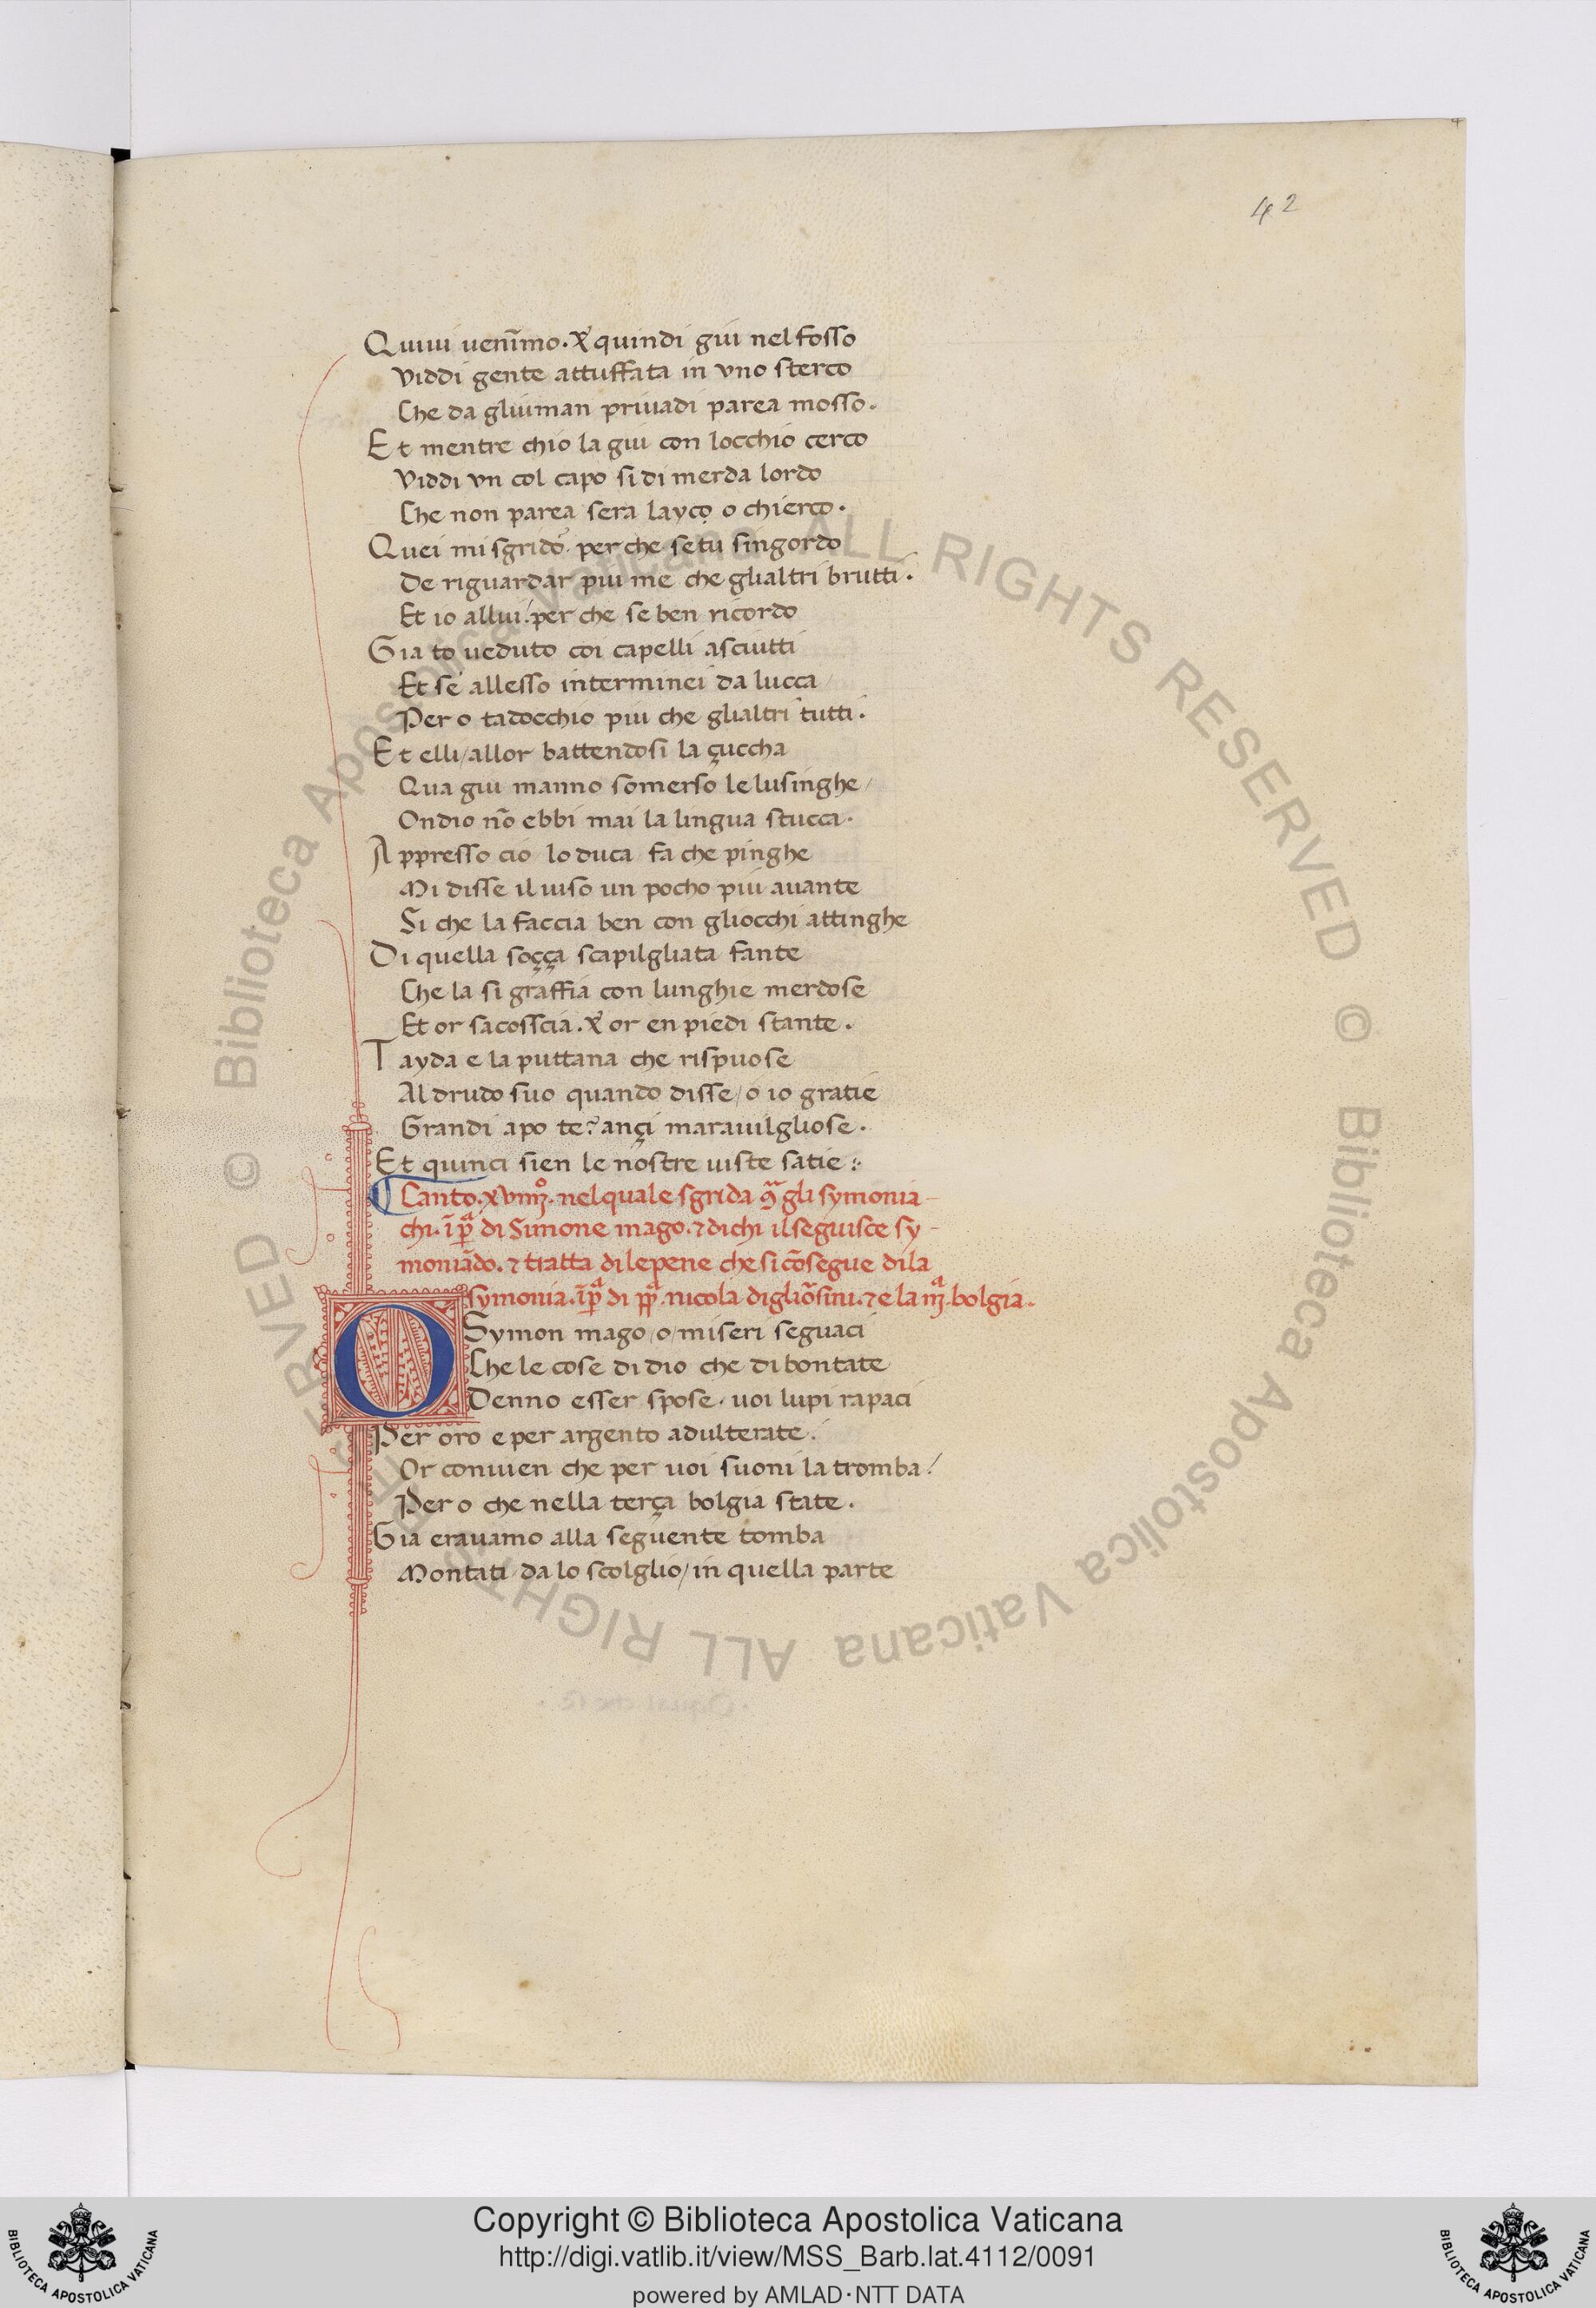 42
Quiui uenīmo. & quindi giu nel fosso
Viddi gente attuffata in vno sterco
Che da gliuman priuadi parea mosso.
Et mentre chio la giu con locchio cerco
Viddi vn col capo si di merda lordo
Che non parea sera layco o chierco.
Quei mi sgrido. per che se tu singordo
De riguardar piu me che glialtri brutti.
Et io allui. per che se ben ricordo
Gia to ueduto coi capelli asciutti
Et se allesso interminei da lucca
Per o tadocchio piu che glialtri tutti.
Et elli/allor battendosi la çuccha
Qua giu manno somerso le lusinghe/
Ondio nō ebbi mai la lingua stucca.
Appresso cio lo duca fa che pinghe
Mi disse il uiso un pocho piu auante
Si che la faccia ben con gliocchi attinghe
Di quella soçça scapilgliata fante
Che la si graffia con lunghie merdose
Et or sacosscia. & or en piedi stante.
Tayda e la puttana che rispuose
Al drudo suo quando disse/o io gratie
Grandi apo te? ançi marauilgliose.
Et quinci sien le nostre uiste satie:
Canto. xviiij°. nel quale sgrida 9ͣ gli symonia-
chi. ī pͣ di Simone mago. ⁊ di chi il seguisce sy-
moniādo. ⁊ tratta di le pene che si cōsegue di la
symonia. ī pͣ di ppͣ. nicola di gliōsini. ⁊ e la iijͣ. bolgia.
O Symon mago/o/miseri seguaci
Che le cose di dio che di bontate
Denno esser spose. uoi lupi rapaci
Per oro e per argento adulterate.
Or conuien che per uoi suoni la tromba/
Per o che nella terça bolgia state.
Gia erauamo alla seguente tomba
Montati/da lo scolglio/in quella parte
© Biblioteca Apostolica Vaticana ALL RIGHTS RESERVED © Biblioteca Apostolica Vaticana ALL RIGHTS RESERVED
Copyright © Biblioteca Apostolica Vaticana
http://digi.vatlib.it/view/MSS_Barb.lat.4112/0091
powered by AMLAD·NTT DATA
BIBLIOTECA APOSTOLICA VATICANA
BIBLIOTECA APOSTOLICA VATICANA